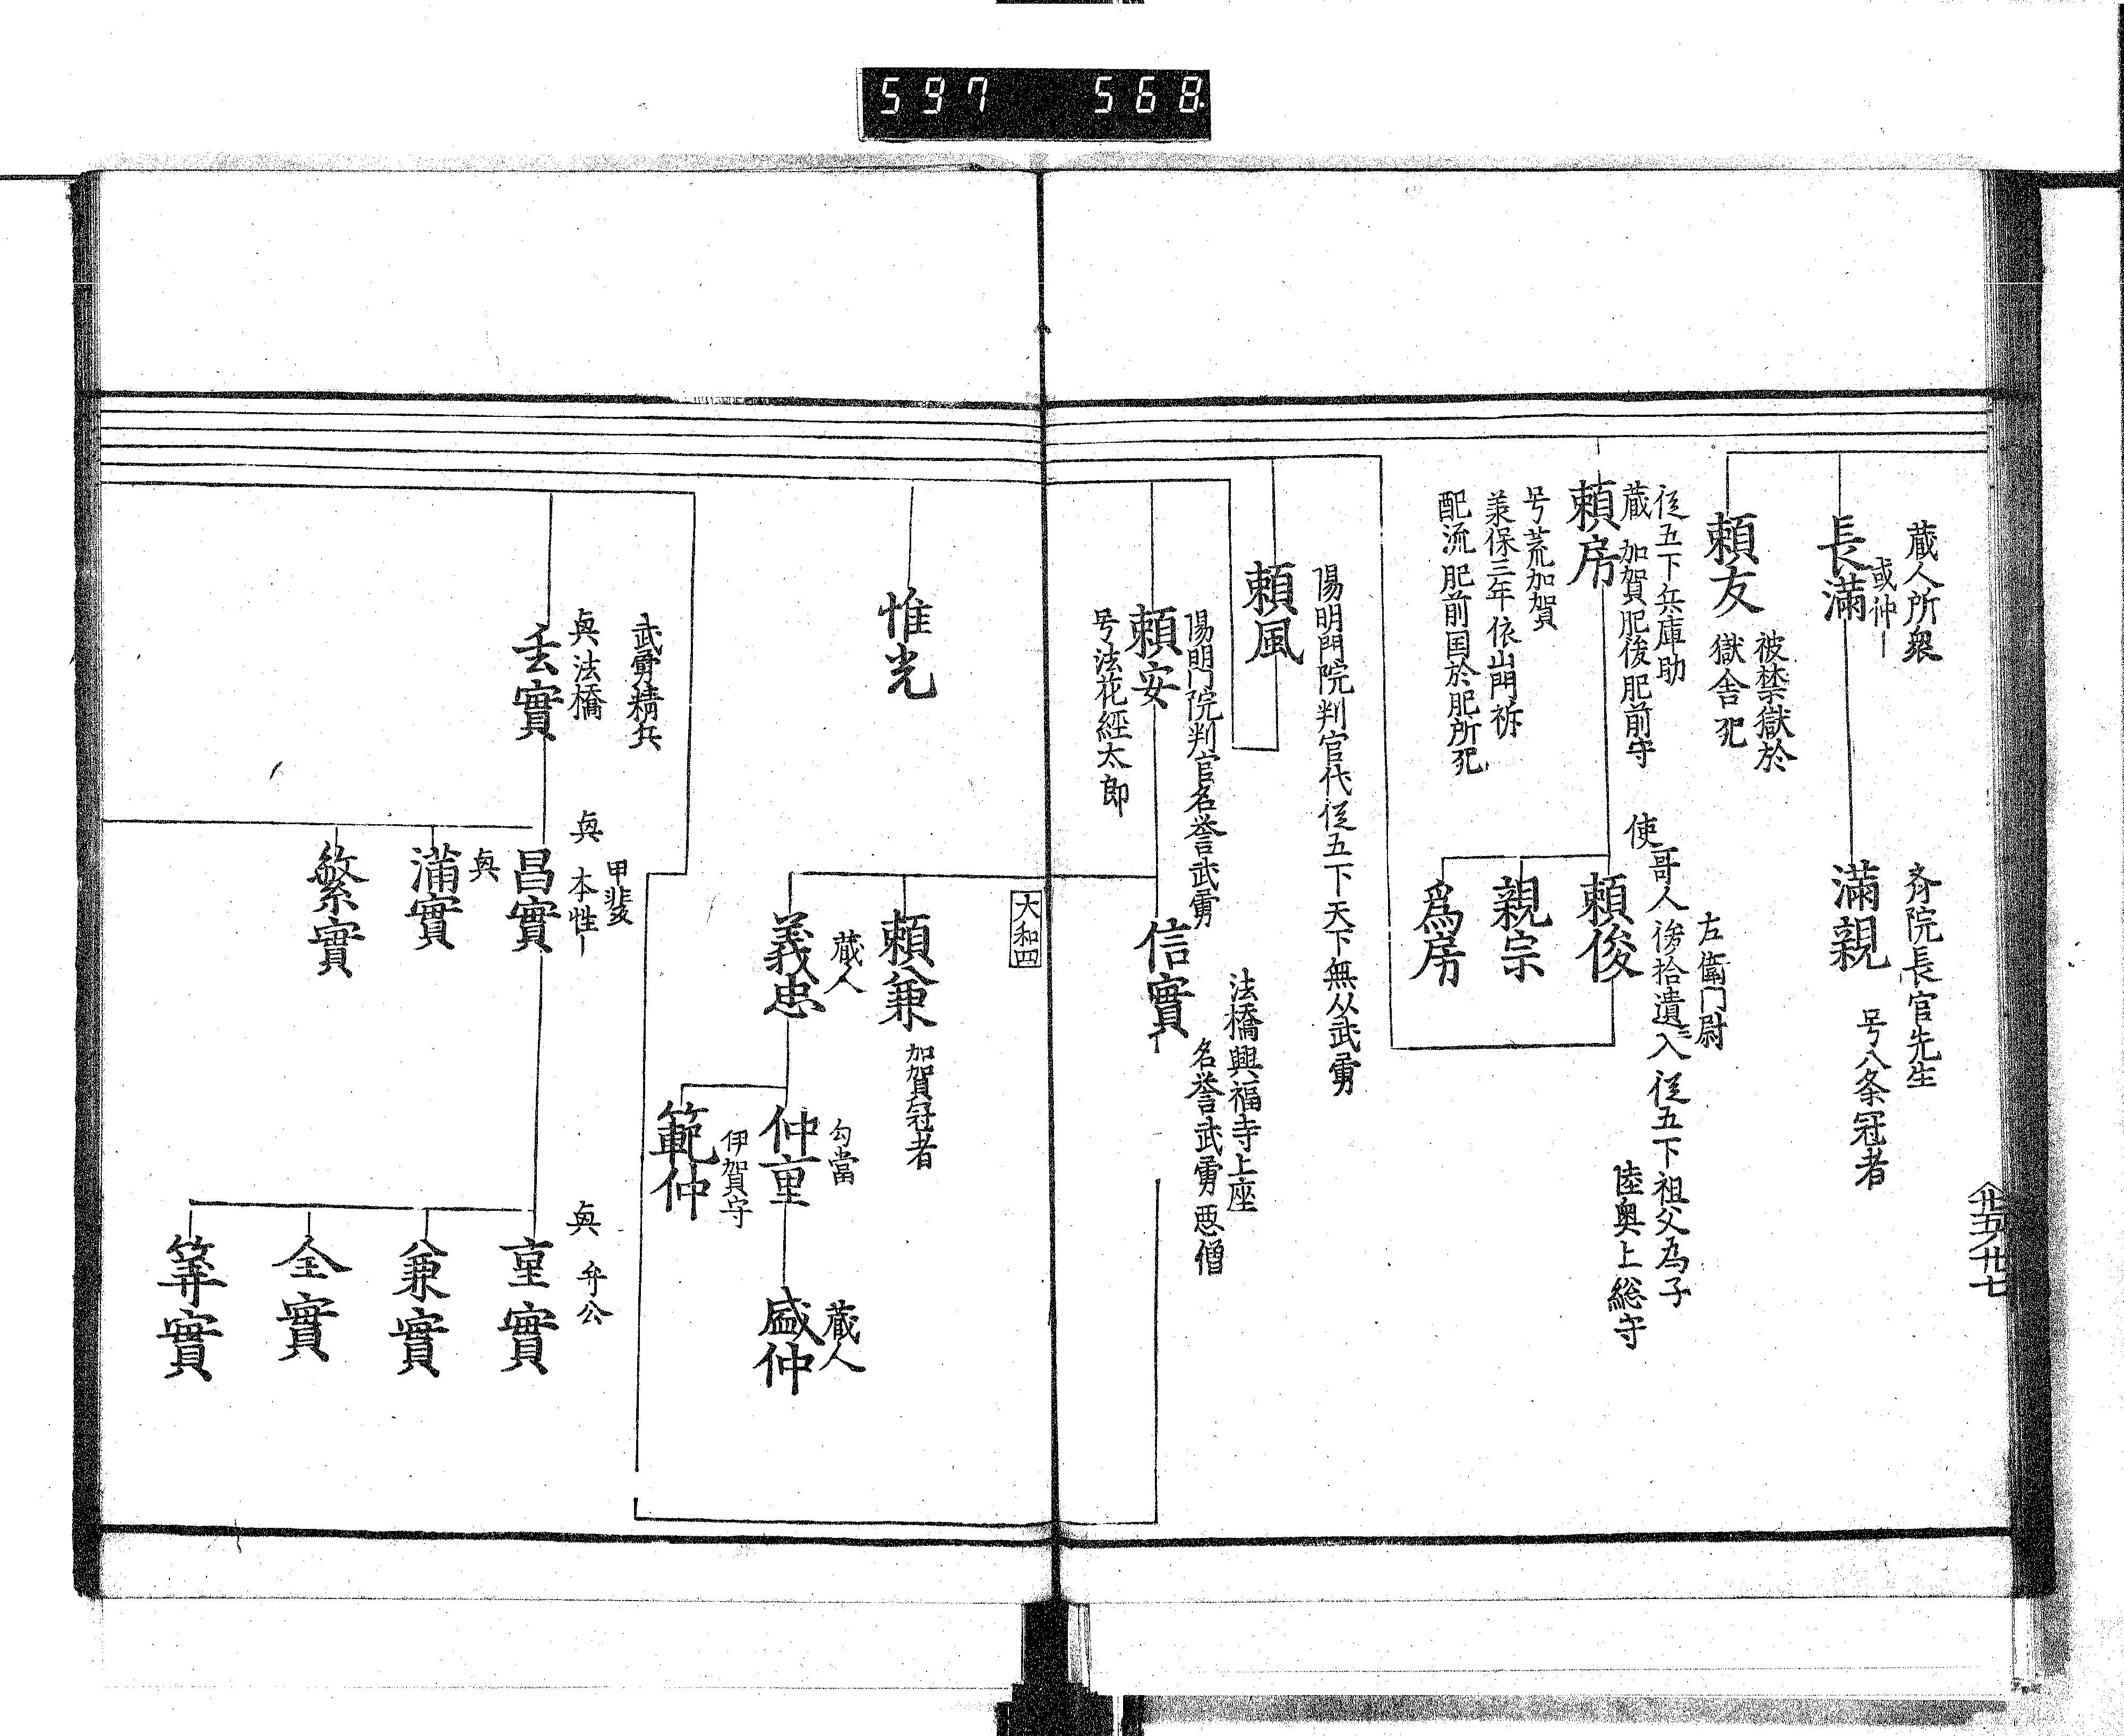 597 568
蔵人所衆
長滿
或仲ー
斉院長官先生
滿親
号八条冠者
頼友
被禁獄於
獄舎死
従五下兵庫助
蔵 加賀肥後肥前守
頼房
号荒加賀
兼保三年依山門訴
配流肥前国於肥所死
左衛門尉
使
哥人後拾遺ニ入従五下祖父為子
陸奥上総守
頼俊
親宗
爲房
陽明門院判官代従五下天下無双武勇
頼風
陽明門院判官名誉武勇
頼安
号法花經太郎
法橋興福寺上座
名誉武勇悪僧
信實
大和四
惟光
頼兼
加賀冠者
蔵人
義忠
勾當
仲重
伊賀守
範仲
蔵人
盛仲
武勇精兵
興法橋
玄實
甲斐
興 本性ー
昌實
興
滿實
繁實
興 弁公
重實
兼實
全實
筭實
廿五ノ廿七